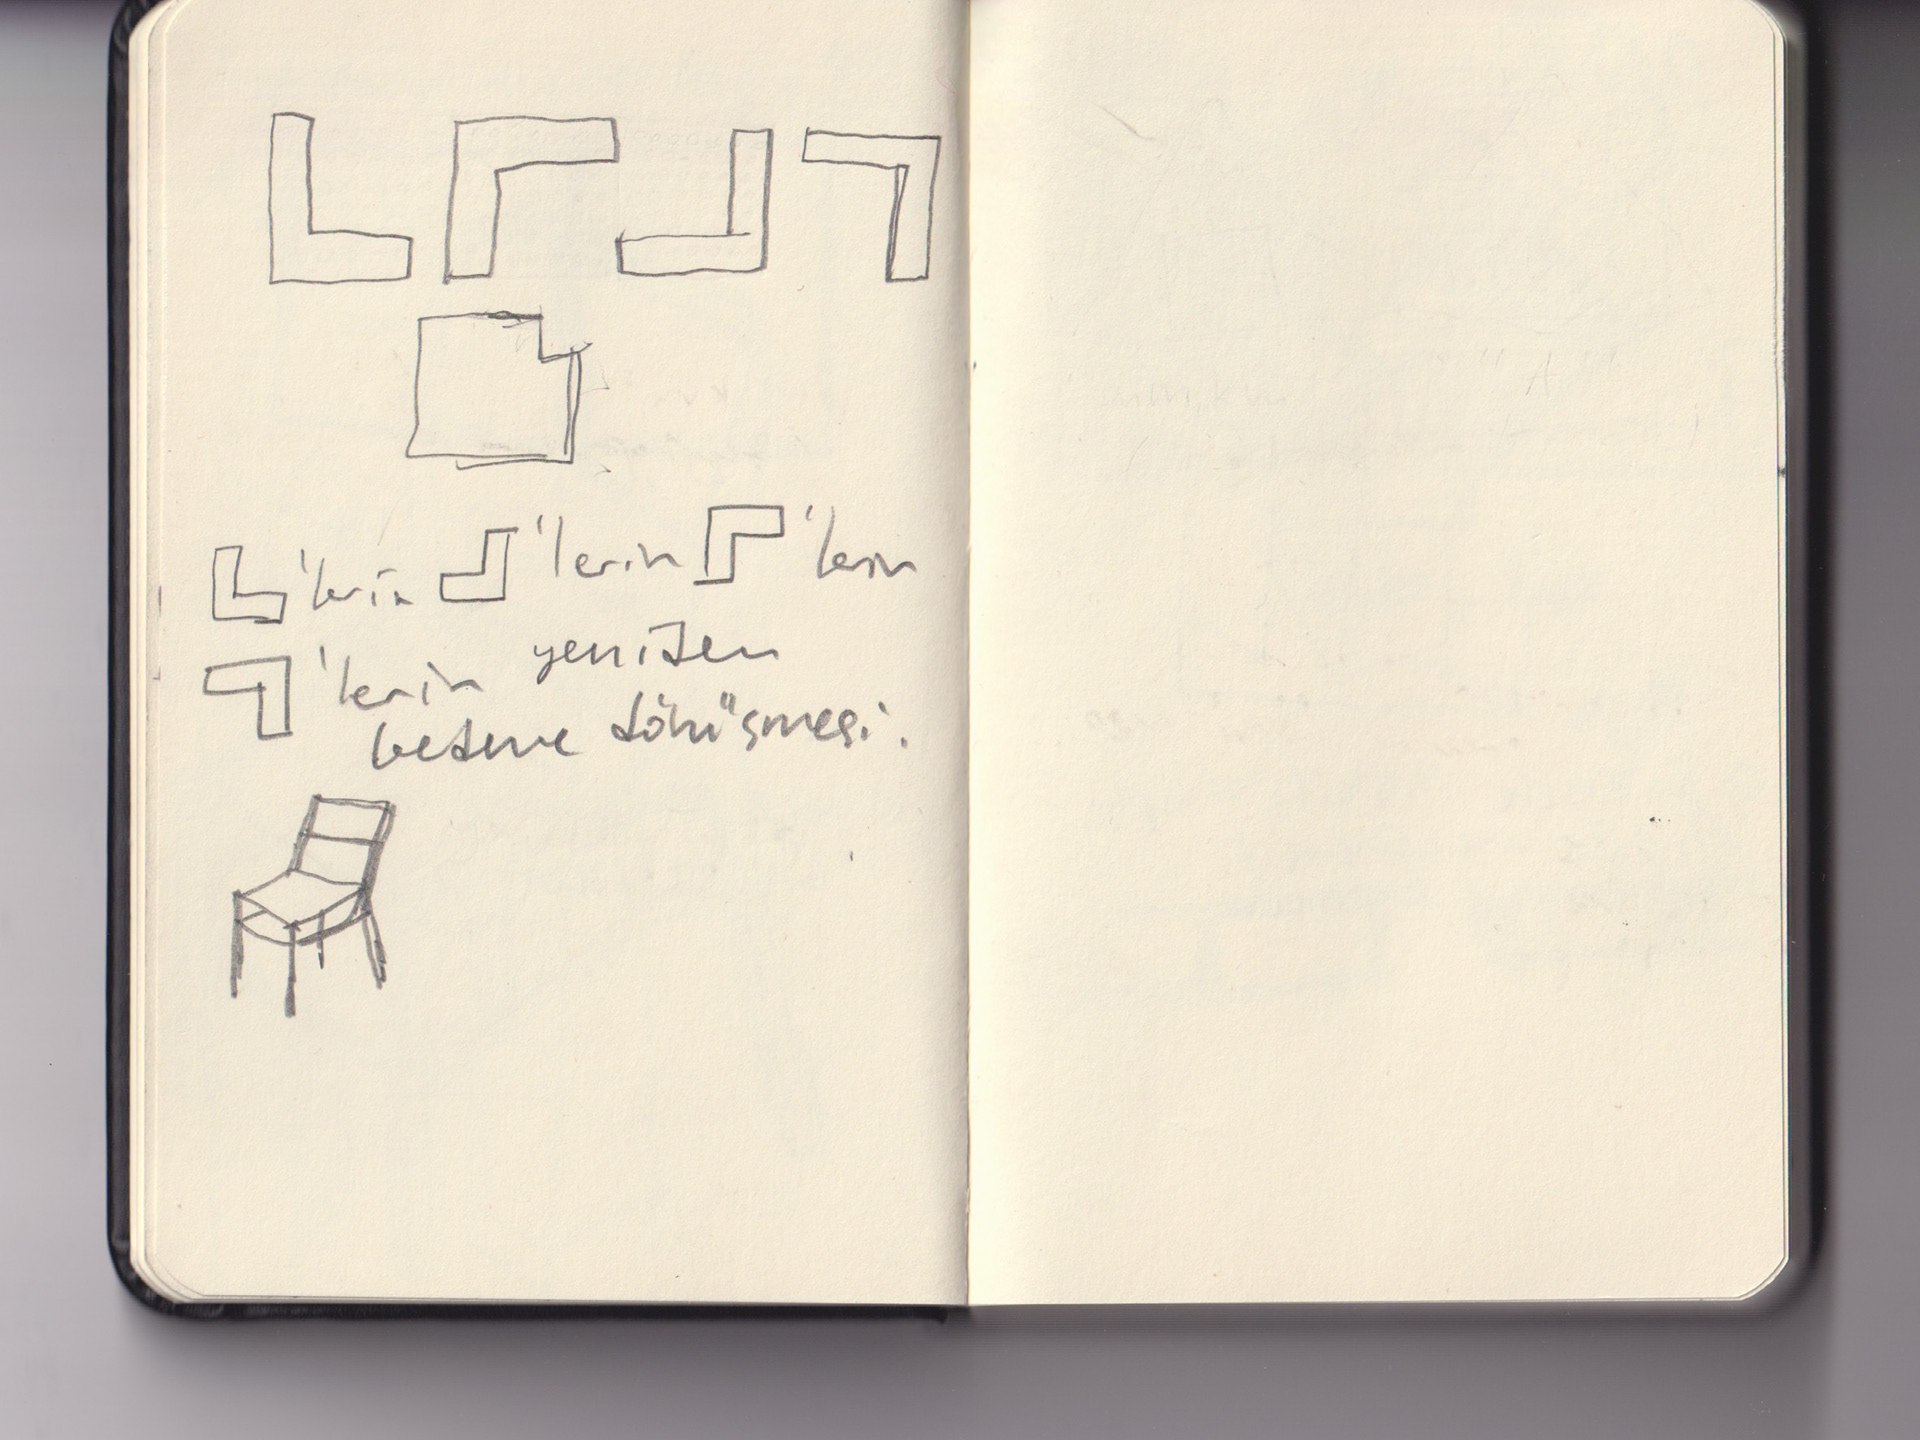 'lerin 'lerin 'lerin
'lerin yeniden
bedene dönüşmesi.